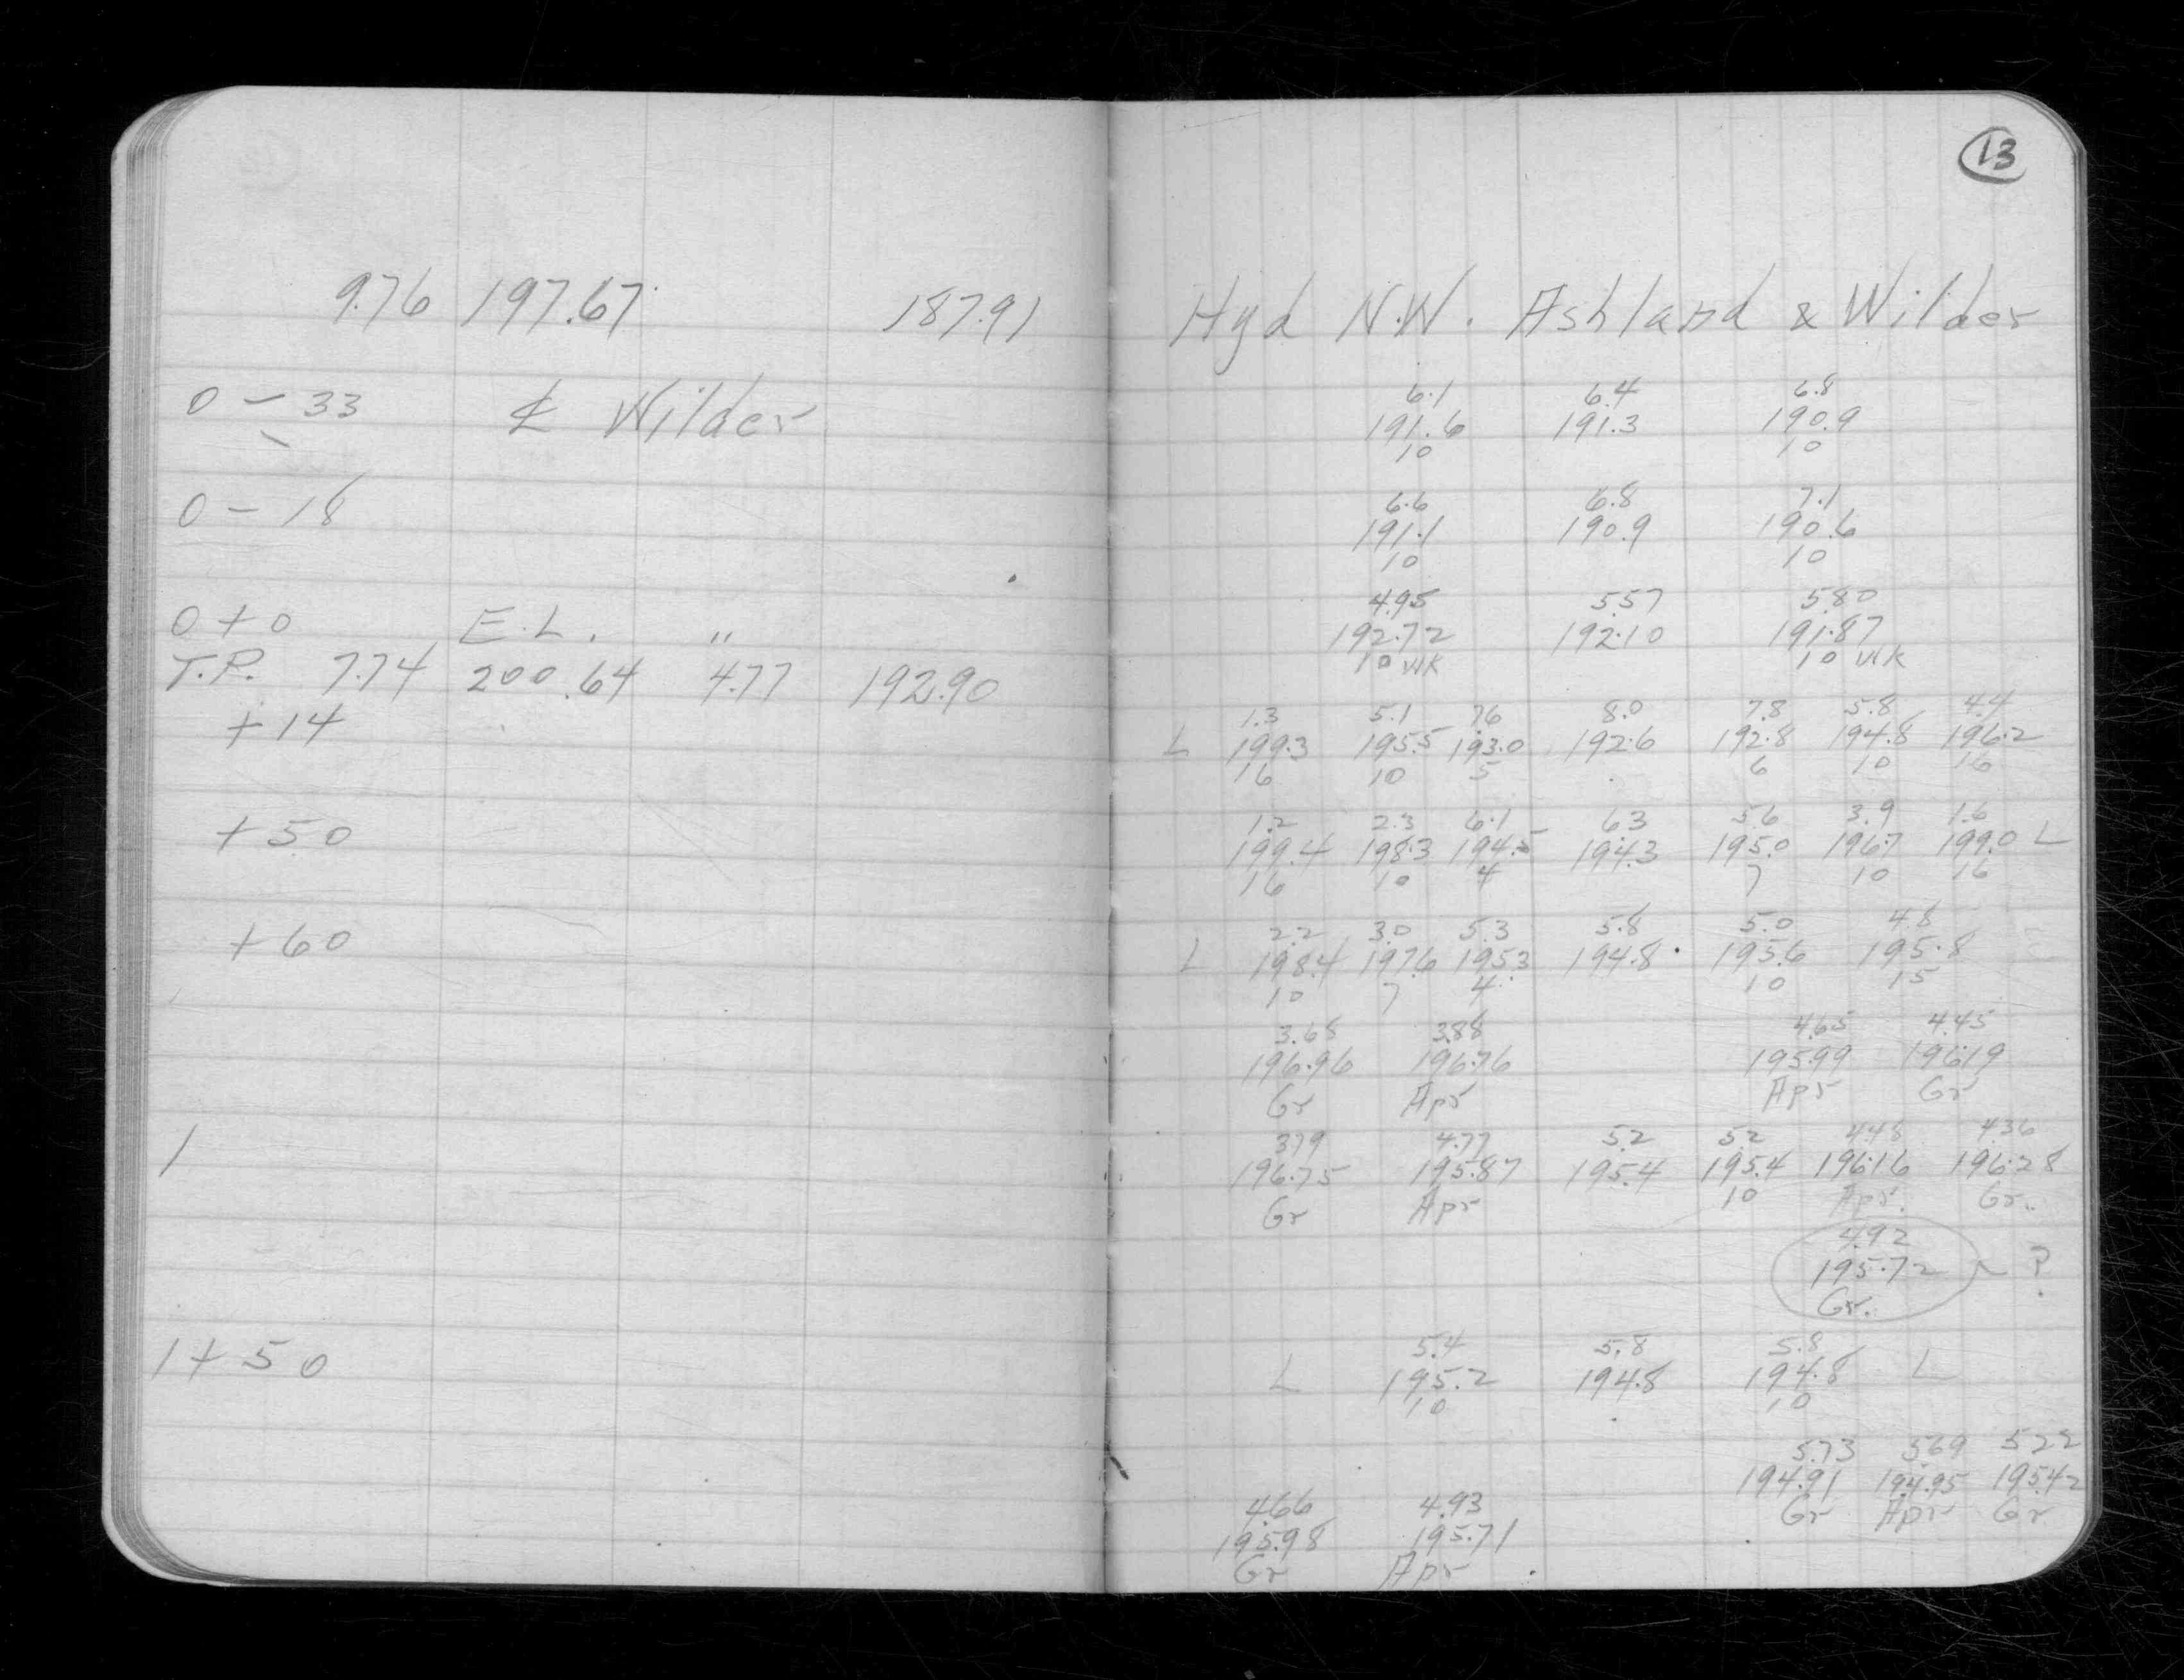 13
9.76 197.67 187.91 Hyd N.W. Ashland & Wilder
6.1 6.4 6.8
0 - 33 ₵ Wilder 191.6 191.3 190.9
10 10
6.6 6.8 7.1
0 - 18 191.1 190.9 190.6
10 10
4.95 5.57 5.80
0 + 0 E.L. " 192.72 192.10 191.87
10 WK 10 WK
T.P. 7.74 200.64 4.77 192.90
1.3 5.1 7.6 8.0 7.8 5.8 4.4
+ 14 L 199.3 195.5 193.0 192.6 192.8 194.8 196.2
16 10 5 6 10 16
1.2 2.3 6.1 6.3 5.6 3.9 1.6
+ 50 199.4 198.3 194.5 194.3 195.0 196.7 199.0 L
16 10 4 7 10 16
2.2 3.0 5.3 5.8 5.0 4.8
+ 60 L 198.4 197.6 195.3 194.8 195.6 195.8
10 7 4 10 15
3.68 3.88 4.65 4.45
196.96 196.76 195.99 196.19
Gr Apr Apr Gr
3.79 4.77 5.2 5.2 4.48 4.36
1 196.75 195.87 195.4 195.4 196.16 196.28
Gr Apr 10 Apr. Gr.
4.92
195.72 ?
Gr.
5.4 5.8 5.8
1 + 50 L 195.2 194.8 194.8 L
10 10
5.73 5.69 5.22
194.91 194.95 195.42
Gr Apr Gr
4.66 4.93
195.98 195.71
Gr Apr